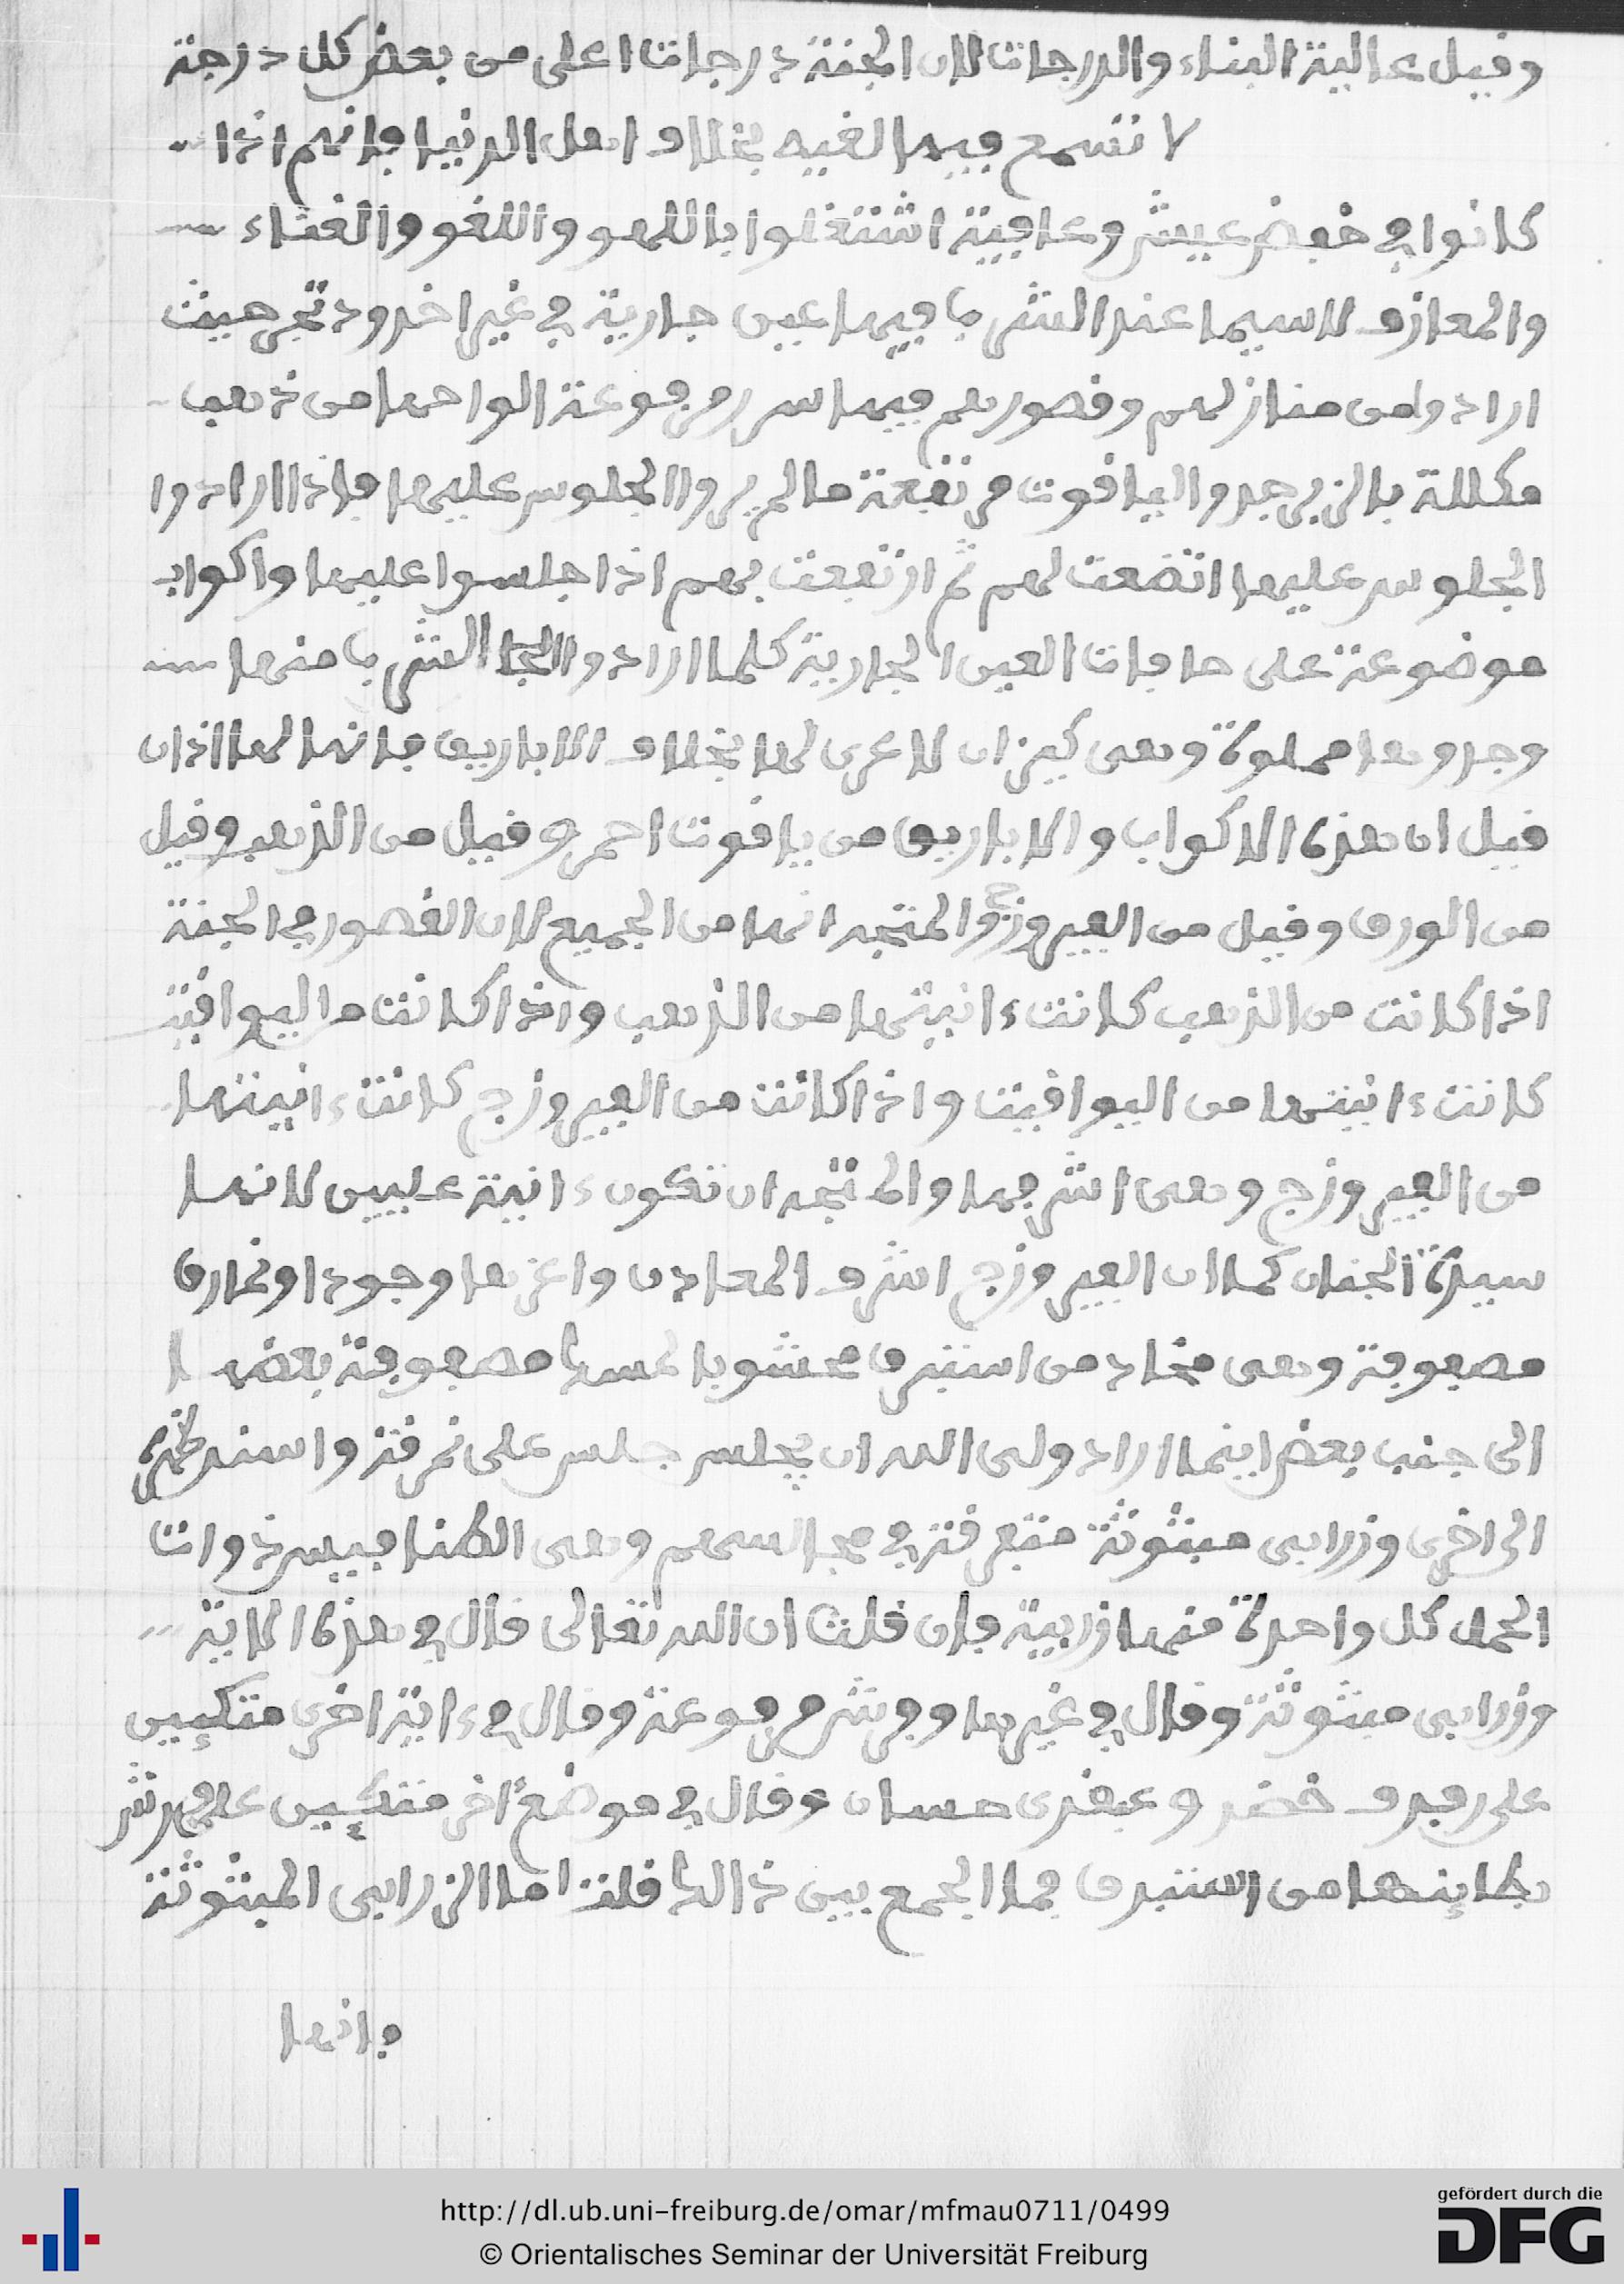 وقيل عالية البناء والدرجات لان الجنة درجات اعلى من بعض كل درجة
لا تسمع فيها لغية بخلاف اهل الدنيا فانهم اذا
كانوا في خفض عيش وعافية اشتغلوا باللهو واللغو والغناء
والمعازف لاسيما عند الشرب فيها عين جارية في غير اخدود تجري حيث
ارادوا من منازلهم وقصورهم فيها سرر مرفوعة الواحها من ذهب
مكللة بالزبرجد والياقوت مرتفعة ما لم يروا الجلوس عليها فاذا ارادوا
الجلوس عليها اتضعت لهم ثم ارتفعت بهم اذا جلسوا عليها واكواب
موضوعة على حافات العين الجارية كلما ارادوا الشرب منها
وجدوها مملوءة وهي كيزان لا عرى لها بخلاف الاباريق فانها لها اذان
قيل ان هذه الاكواب والاباريق من ياقوت احمر وقيل من الذهب وقيل
من الورق وقيل من الفيروزج والمتجه انها من الجميع لان القصور في الجنة
اذا كانت من الذهب كانت ءانيتها من الذهب واذا كانت من اليواقيت
كانت ءانيتها من اليواقيت واذا كانت من الفيروزج كانت ءانيتها
من الفيروزج وهي اشرفها والمتجه ان تكون ءانية عليين لانها
سيدة الجنان كما ان الفيروزج اشرف المعادن واعزها وجودا ونمارق
مصفوفة وهي مخاد من استبرق محشو بالمسك مصفوفة بعضها
الى جنب بعض اينما اراد ولي الله ان يجلس جلس على نمرقة واسند ظهره
الى اخرى وزرابي مبثوثة متفرقة في مجالسهم وهي الطنافيس ذوات
الخمل كل واحدة منها زربية فان قلت ان الله تعالى قال في هذه الاية
وزرابي مبثوثة وقال في غيرها وفرش مرفوعة وقال في ءاية اخرى متكيين
على رفرف خضر وعبقري حسان وقال في موضع اخر متكيين على فرش
بطاينها من استبرق فما الجمع بين ذالك قلت اما الزرابي المبثوثة
فانها
http://dl.ub.uni-freiburg.de/omar/mfmau0711/0499
© Orientalisches Seminar der Universität Freiburg
gefördert durch die
DFG